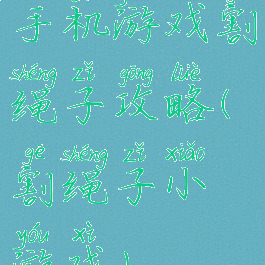 手机游戏割
shéng zǐ gōng lüè
绳子攻略(
gē shéng zǐ xiǎo
割绳子小
yóu xì
游戏)